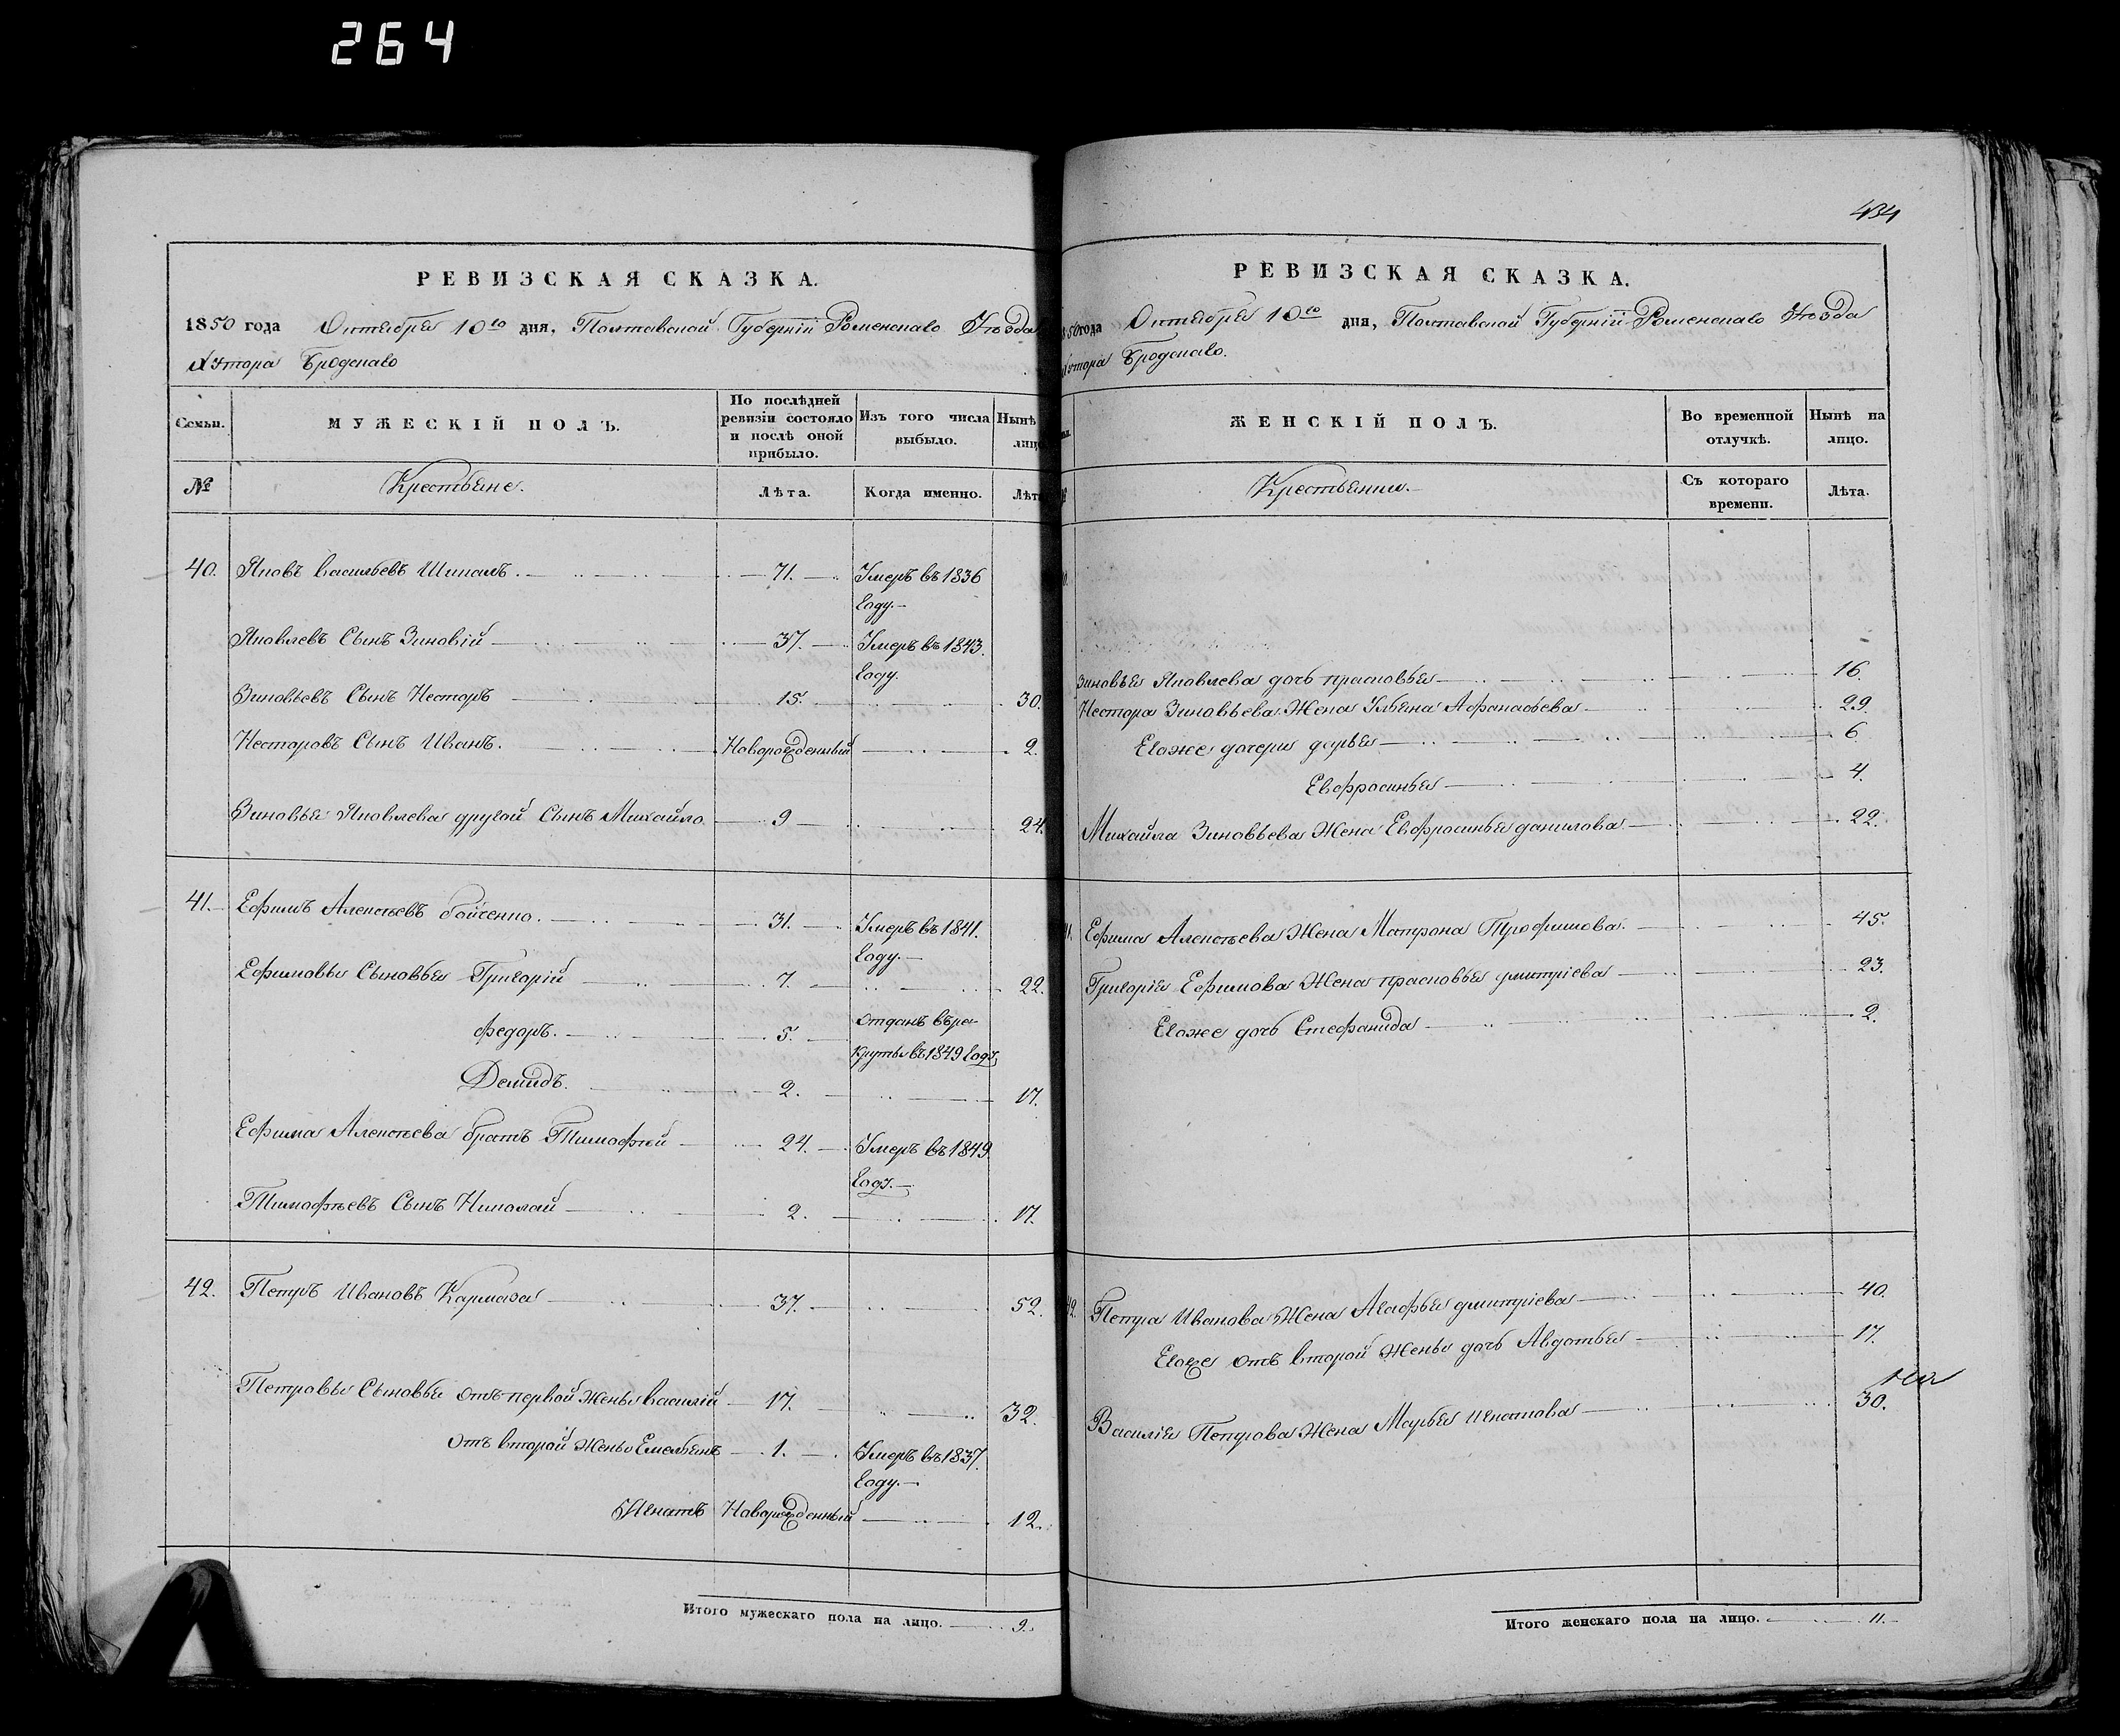 264
РЕВИЗСКАЯ СКАЗКА.
1850 года Октября 10го дня, Полтавской Губернiи Роменскаго Уѣзда
Хутора Бродскаго
Семьи. МУЖЕСКIЙ ПОЛЪ. По послѣдней ревизiи состояло и послѣ оной прибыло. Изъ того числа выбыло. Нынѣ лицо
№ Крестьяне. Лѣта. Когда именно. Лѣта
40. Яковъ васильевъ Шикалъ. 71. Умеръ въ 1836
году.
Яковлевъ Сынъ Зиновiй 37. Умеръ въ 1843.
году.
Зиновьевъ Сынъ Несторъ 15. 30.
Несторовъ Сынъ Иванъ. Новорожденный 2.
Зиновья Яковлева другой Сынъ Михайло 9 24.
41. Ефимъ Алексѣевъ бойченко. 31. Умеръ въ 1841.
году.
Ефимовы Сыновья Григорiй 7. 22.
федоръ. 5. отданъ въ ре-
круты въ 1849 году
Демидъ. 2. 17.
Ефима Алексѣева братъ Тимофей 24. Умеръ въ 1849.
году.
Тимофѣевъ Сынъ Николай 2. 17.
42. Петръ Ивановъ Кармаза 37. 52.
Петровы Сыновья отъ первой жены василiй 17. 32.
отъ второй жены Емельянъ 1. Умеръ въ 1837.
году.
Игнатъ Новорожденный 12.
Итого мужескаго пола на лицо. 9.
434
РЕВИЗСКАЯ СКАЗКА.
1850 года Октября 10го дня, Полтавской Губернiи Роменскаго Уѣзда
Хутора Бродскаго.
ЖЕНСКIЙ ПОЛЪ. Во временной отлучкѣ. Нынѣ на лицо.
Крестьянки. Съ котораго времени. Лѣта.
Зиновья Яковлева дочь прасковья 16.
Нестора Зиновьева Жена Ульяна Афанасьева 29.
Егоже дочери дарья 6
Евфросинья 4.
Михайла Зиновьева Жена Евфросинья данилова 22.
41. Ефима Алексѣева Жена Матрона Трофимова. 45.
Григорiя Ефимова Жена прасковья дмитрiева 23.
Егоже дочь Стефанида 2.
42. Петра Иванова Жена Агафья дмитрiева 40.
Егоже отъ второй жены дочь Авдотья 17.
Василiя Петрова Жена Марья игнатова 30.
Итого женскаго пола на лицо. 11.